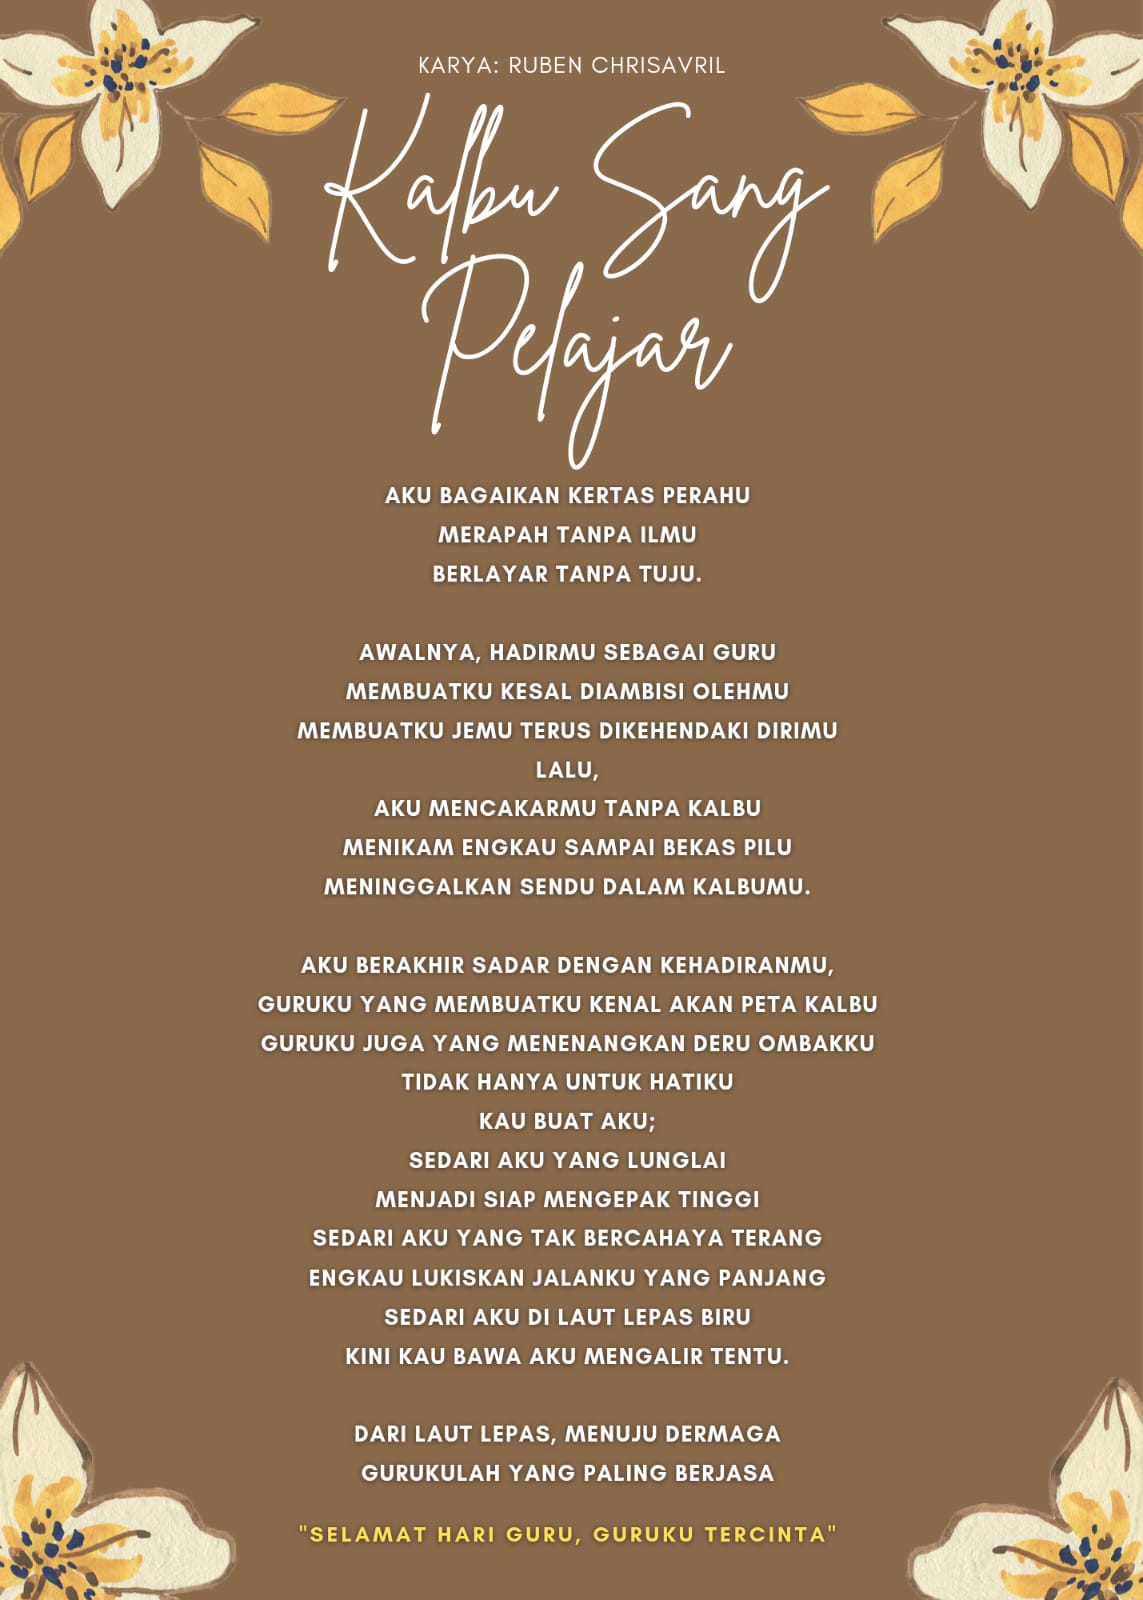 KARYA: RUBEN CHRISAVRIL
Kalbu Sang
Pelajar
AKU BAGAIKAN KERTAS PERAHU
MERAPAH TANPA ILMU
BERLAYAR TANPA TUJU.
AWALNYA, HADIRMU SEBAGAI GURU
MEMBUATKU KESAL DIAMBISI OLEHMU
MEMBUATKU JEMU TERUS DIKEHENDAKI DIRIMU
LALU,
AKU MENCAKARMU TANPA KALBU
MENIKAM ENGKAU SAMPAI BEKAS PILU
MENINGGALKAN SENDU DALAM KALBUMU.
AKU BERAKHIR SADAR DENGAN KEHADIRANMU,
GURUKU YANG MEMBUATKU KENAL AKAN PETA KALBU
GURUKU JUGA YANG MENENANGKAN DERU OMBAKKU
TIDAK HANYA UNTUK HATIKU
KAU BUAT AKU;
SEDARI AKU YANG LUNGLAI
MENJADI SIAP MENGEPAK TINGGI
SEDARI AKU YANG TAK BERCAHAYA TERANG
ENGKAU LUKISKAN JALANKU YANG PANJANG
SEDARI AKU DI LAUT LEPAS BIRU
KINI KAU BAWA AKU MENGALIR TENTU.
DARI LAUT LEPAS, MENUJU DERMAGA
GURUKULAH YANG PALING BERJASA
"SELAMAT HARI GURU, GURUKU TERCINTA"